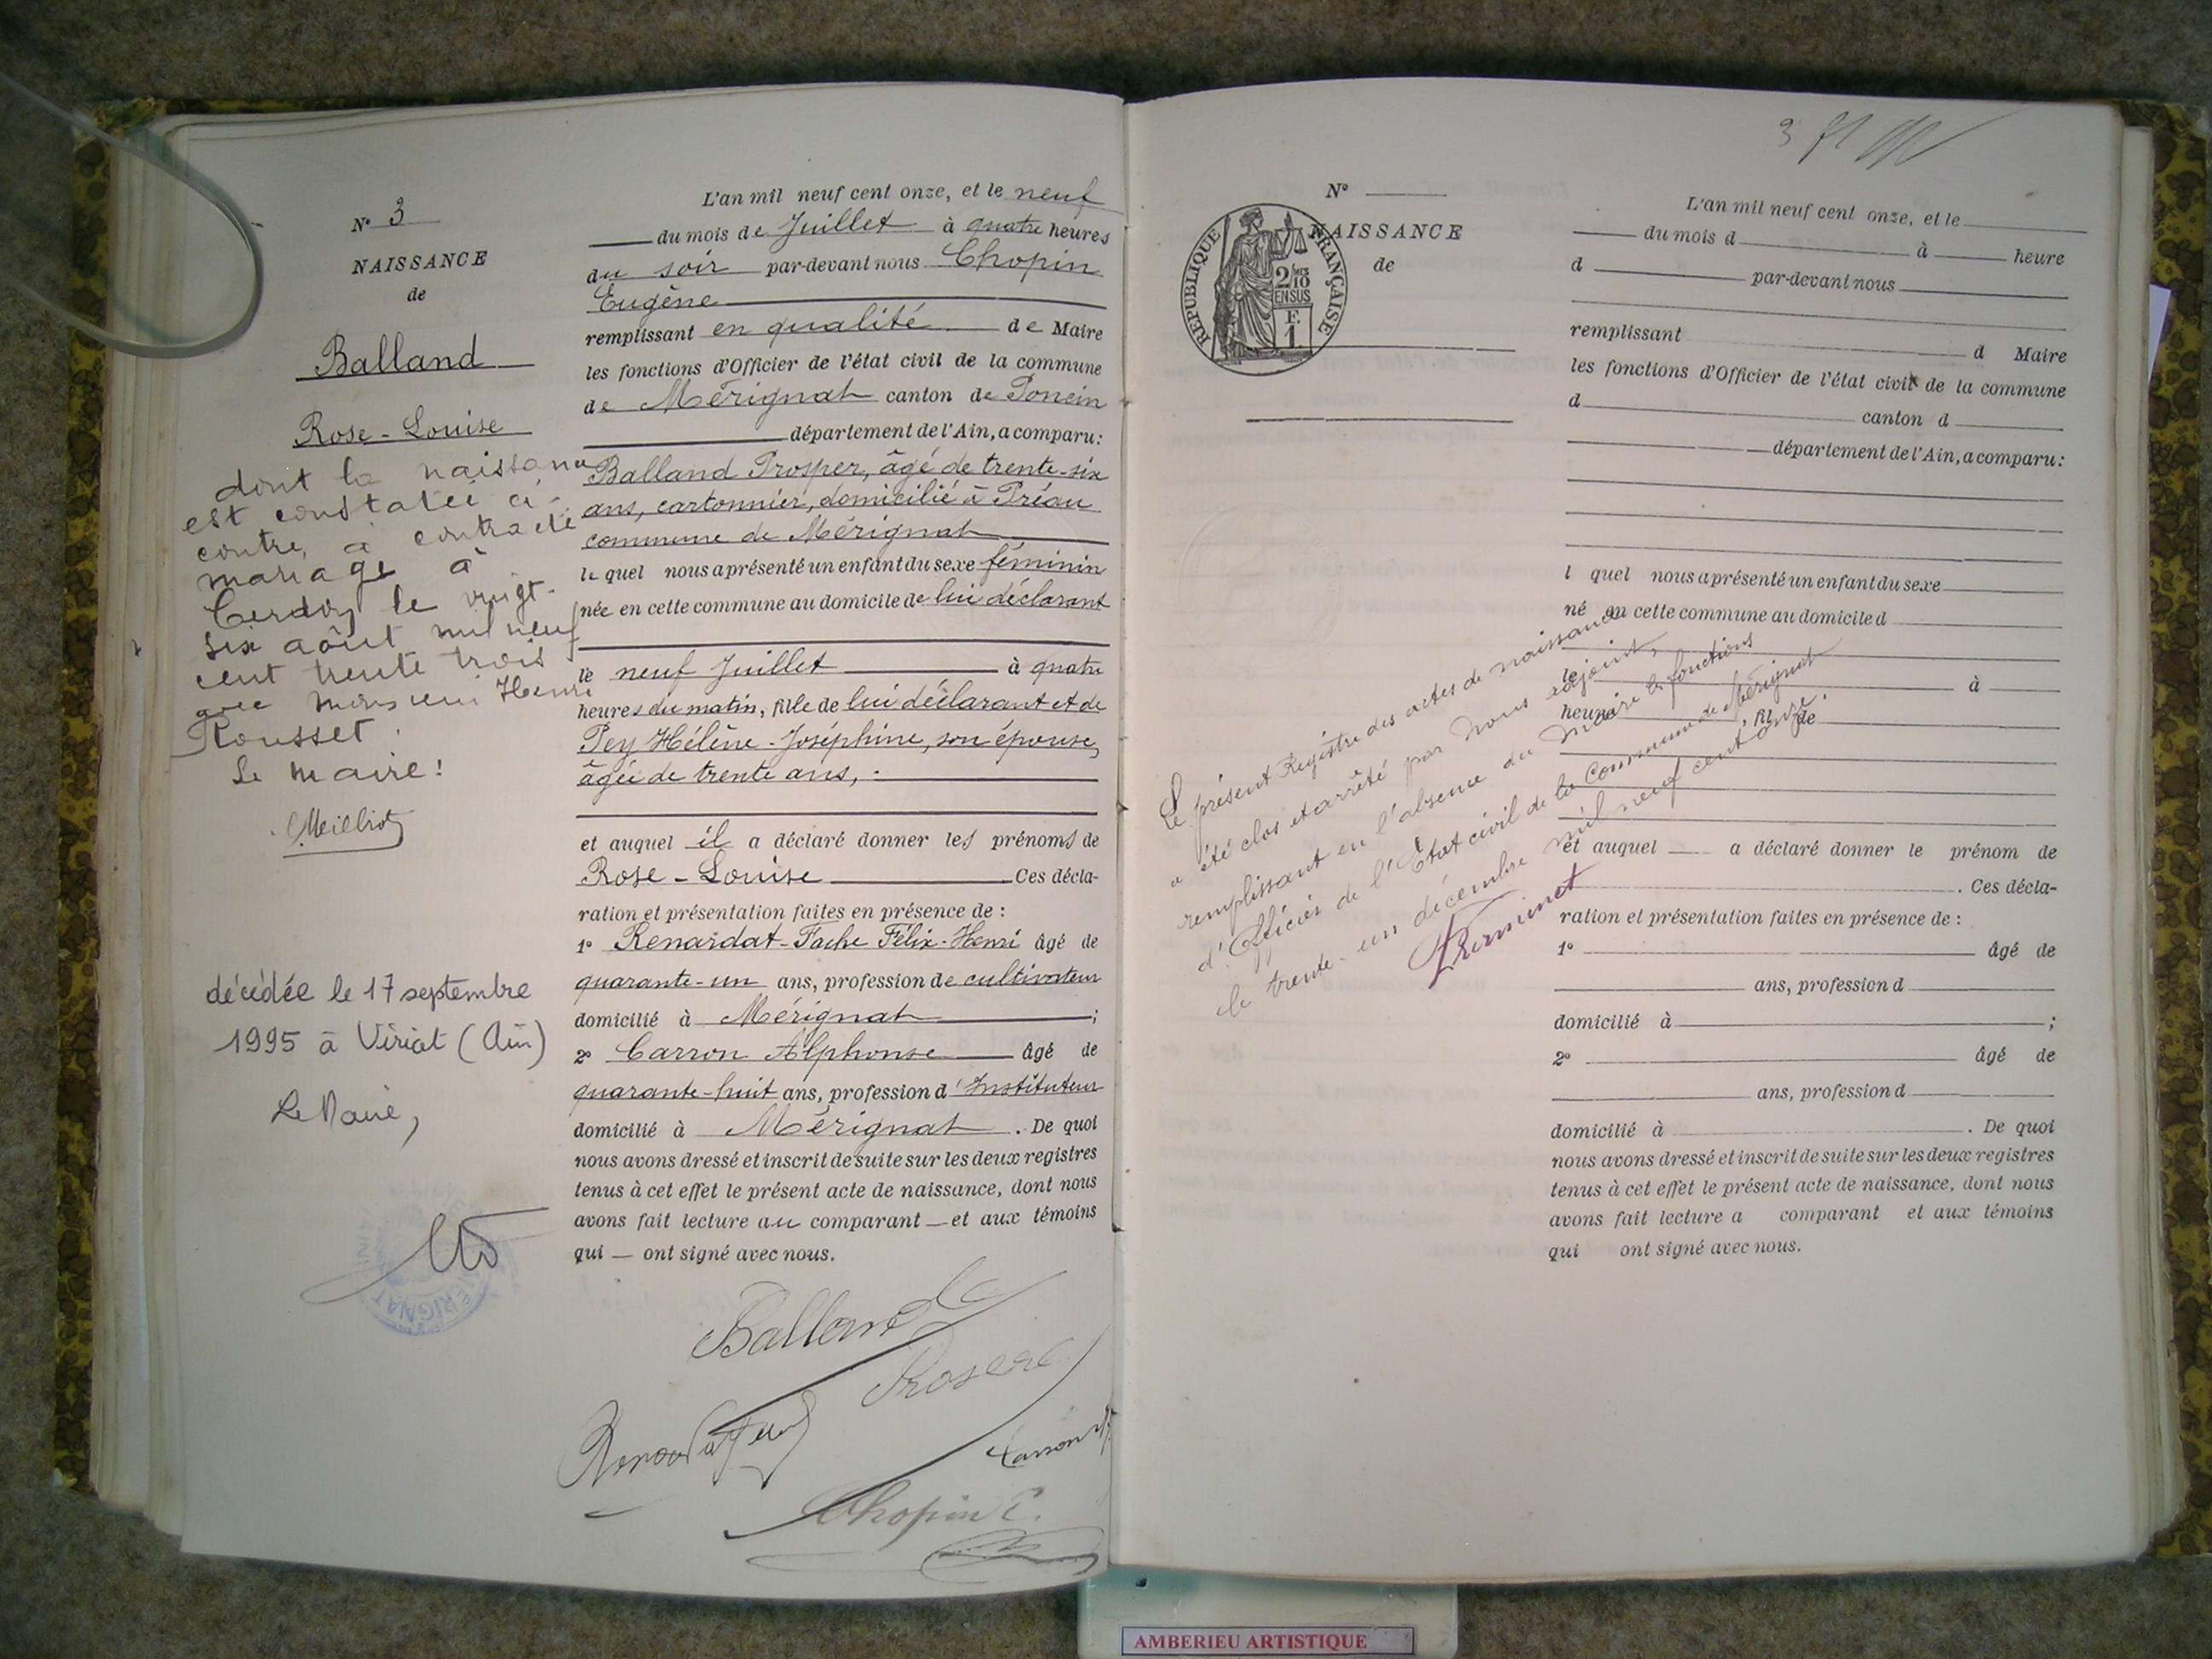 N° 3
NAISSANCE
de
Balland
Rose-Louise
dont la naissance
est constatée ci-
contre, a contracté
mariage à
Cerdon le vingt-
six août mil neuf
cent trente trois
avec monsieur Henri
Rousset.
Le Maire!
décédée le 17 septembre
1995 à Viriat (Ain)
Le Maire,
L'an mil neuf cent onze, et le neuf
du mois de Juillet à quatre heures
du soir par-devant nous Chopin
Eugène
remplissant en qualité de Maire
les fonctions d'Officier de l'état civil de la commune
de Mérignat canton de Poncin
département de l'Ain, a comparu:
Balland Prosper, âgé de trente-six
ans, cartonnier, domicilié à Préau
commune de Mérignat
lequel nous a présenté un enfant du sexe féminin
née en cette commune au domicile de lui déclarant
le neuf Juillet à quatre
heures du matin, fille de lui déclarant et de
Pey Hélène-Joséphine, son épouse,
âgée de trente ans,
et auquel il a déclaré donner les prénoms de
Rose-Louise Ces décla-
ration et présentation faites en présence de :
1° Renardat-Fache Félix-Henri âgé de
quarante-un ans, profession de cultivateur
domicilié à Mérignat ;
2° Carron Alphonse âgé de
quarante-huit ans, profession d'Instituteur
domicilié à Mérignat . De quoi
nous avons dressé et inscrit de suite sur les deux registres
tenus à cet effet le présent acte de naissance, dont nous
avons fait lecture au comparant — et aux témoins
qui — ont signé avec nous.
Balland
Carron
Chopin E.
3
N°
NAISSANCE
de
REPUBLIQUE FRANÇAISE
2/10
EN SUS
F.
1.
L'an mil neuf cent onze, et le
du mois d à heure
d par-devant nous
remplissant d Maire
les fonctions d'Officier de l'état civil de la commune
d canton d
département de l'Ain, a comparu:
l quel nous a présenté un enfant du sexe
né en cette commune au domicile d
le à
heure , fil de
et auquel a déclaré donner le prénom de
. Ces décla-
ration et présentation faites en présence de :
1° âgé de
ans, profession d
domicilié à ;
2° âgé de
ans, profession d
domicilié à . De quoi
nous avons dressé et inscrit de suite sur les deux registres
tenus à cet effet le présent acte de naissance, dont nous
avons fait lecture a comparant et aux témoins
qui ont signé avec nous.
Le présent Registre des actes de naissance
a été clos et arrêté par nous adjoint,
remplissant en l'absence du Maire les fonctions
d'Officier de l'État civil de la Commune de Mérignat
le trente-un décembre mil neuf cent onze.
AMBERIEU ARTISTIQUE